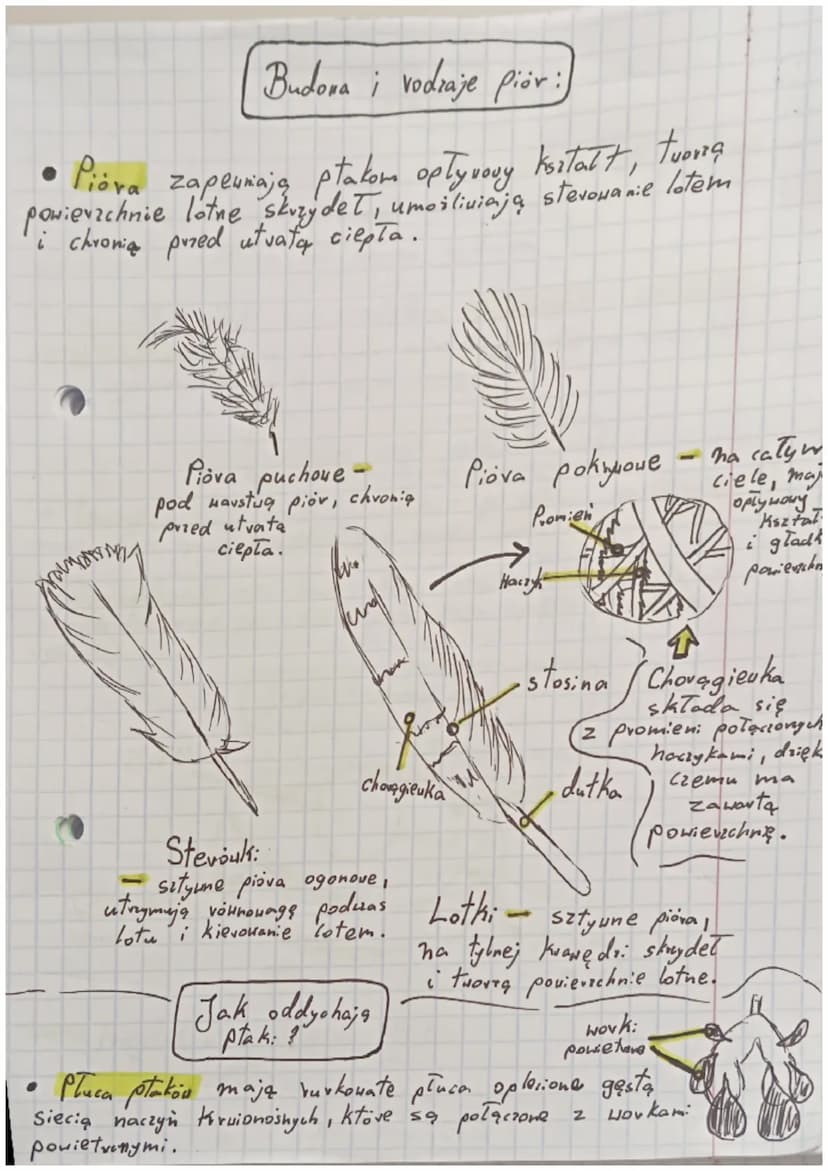 Budowa i rodzaje piór:
• Pióra zapewniają ptakom opływowy kształt, tworzą
powierzchnie lotne skrzydeł, umożliwiają sterowanie lotem
i chronią przed utratą ciepła.
Pióra puchowe –
pod warstwą piór, chronią
przed utratą
ciepła.
Pióra pokrywowe – na całym
ciele, mają
opływowy
kształt
i gładk
powierzchn
Promień
Haczyk
stosina
chorągiewka
dutka
Chorągiewka
składa się
z promieni połączonych
haczykami, dzięk
czemu ma
zawartą
powierzchnię.
Sterówki:
– sztywne pióra ogonowe,
utrzymują równowagę podczas
lotu i kierowanie lotem.
Lotki – sztywne pióra,
na tylnej krawędzi skrzydeł
i tworzą powierzchnie lotne.
Jak oddychają
ptaki?
worki
powietrzne
• Płuca ptaków mają rurkowate płuca oplecione gęstą
siecią naczyń krwionośnych, które są połączone z workami
powietrznymi.